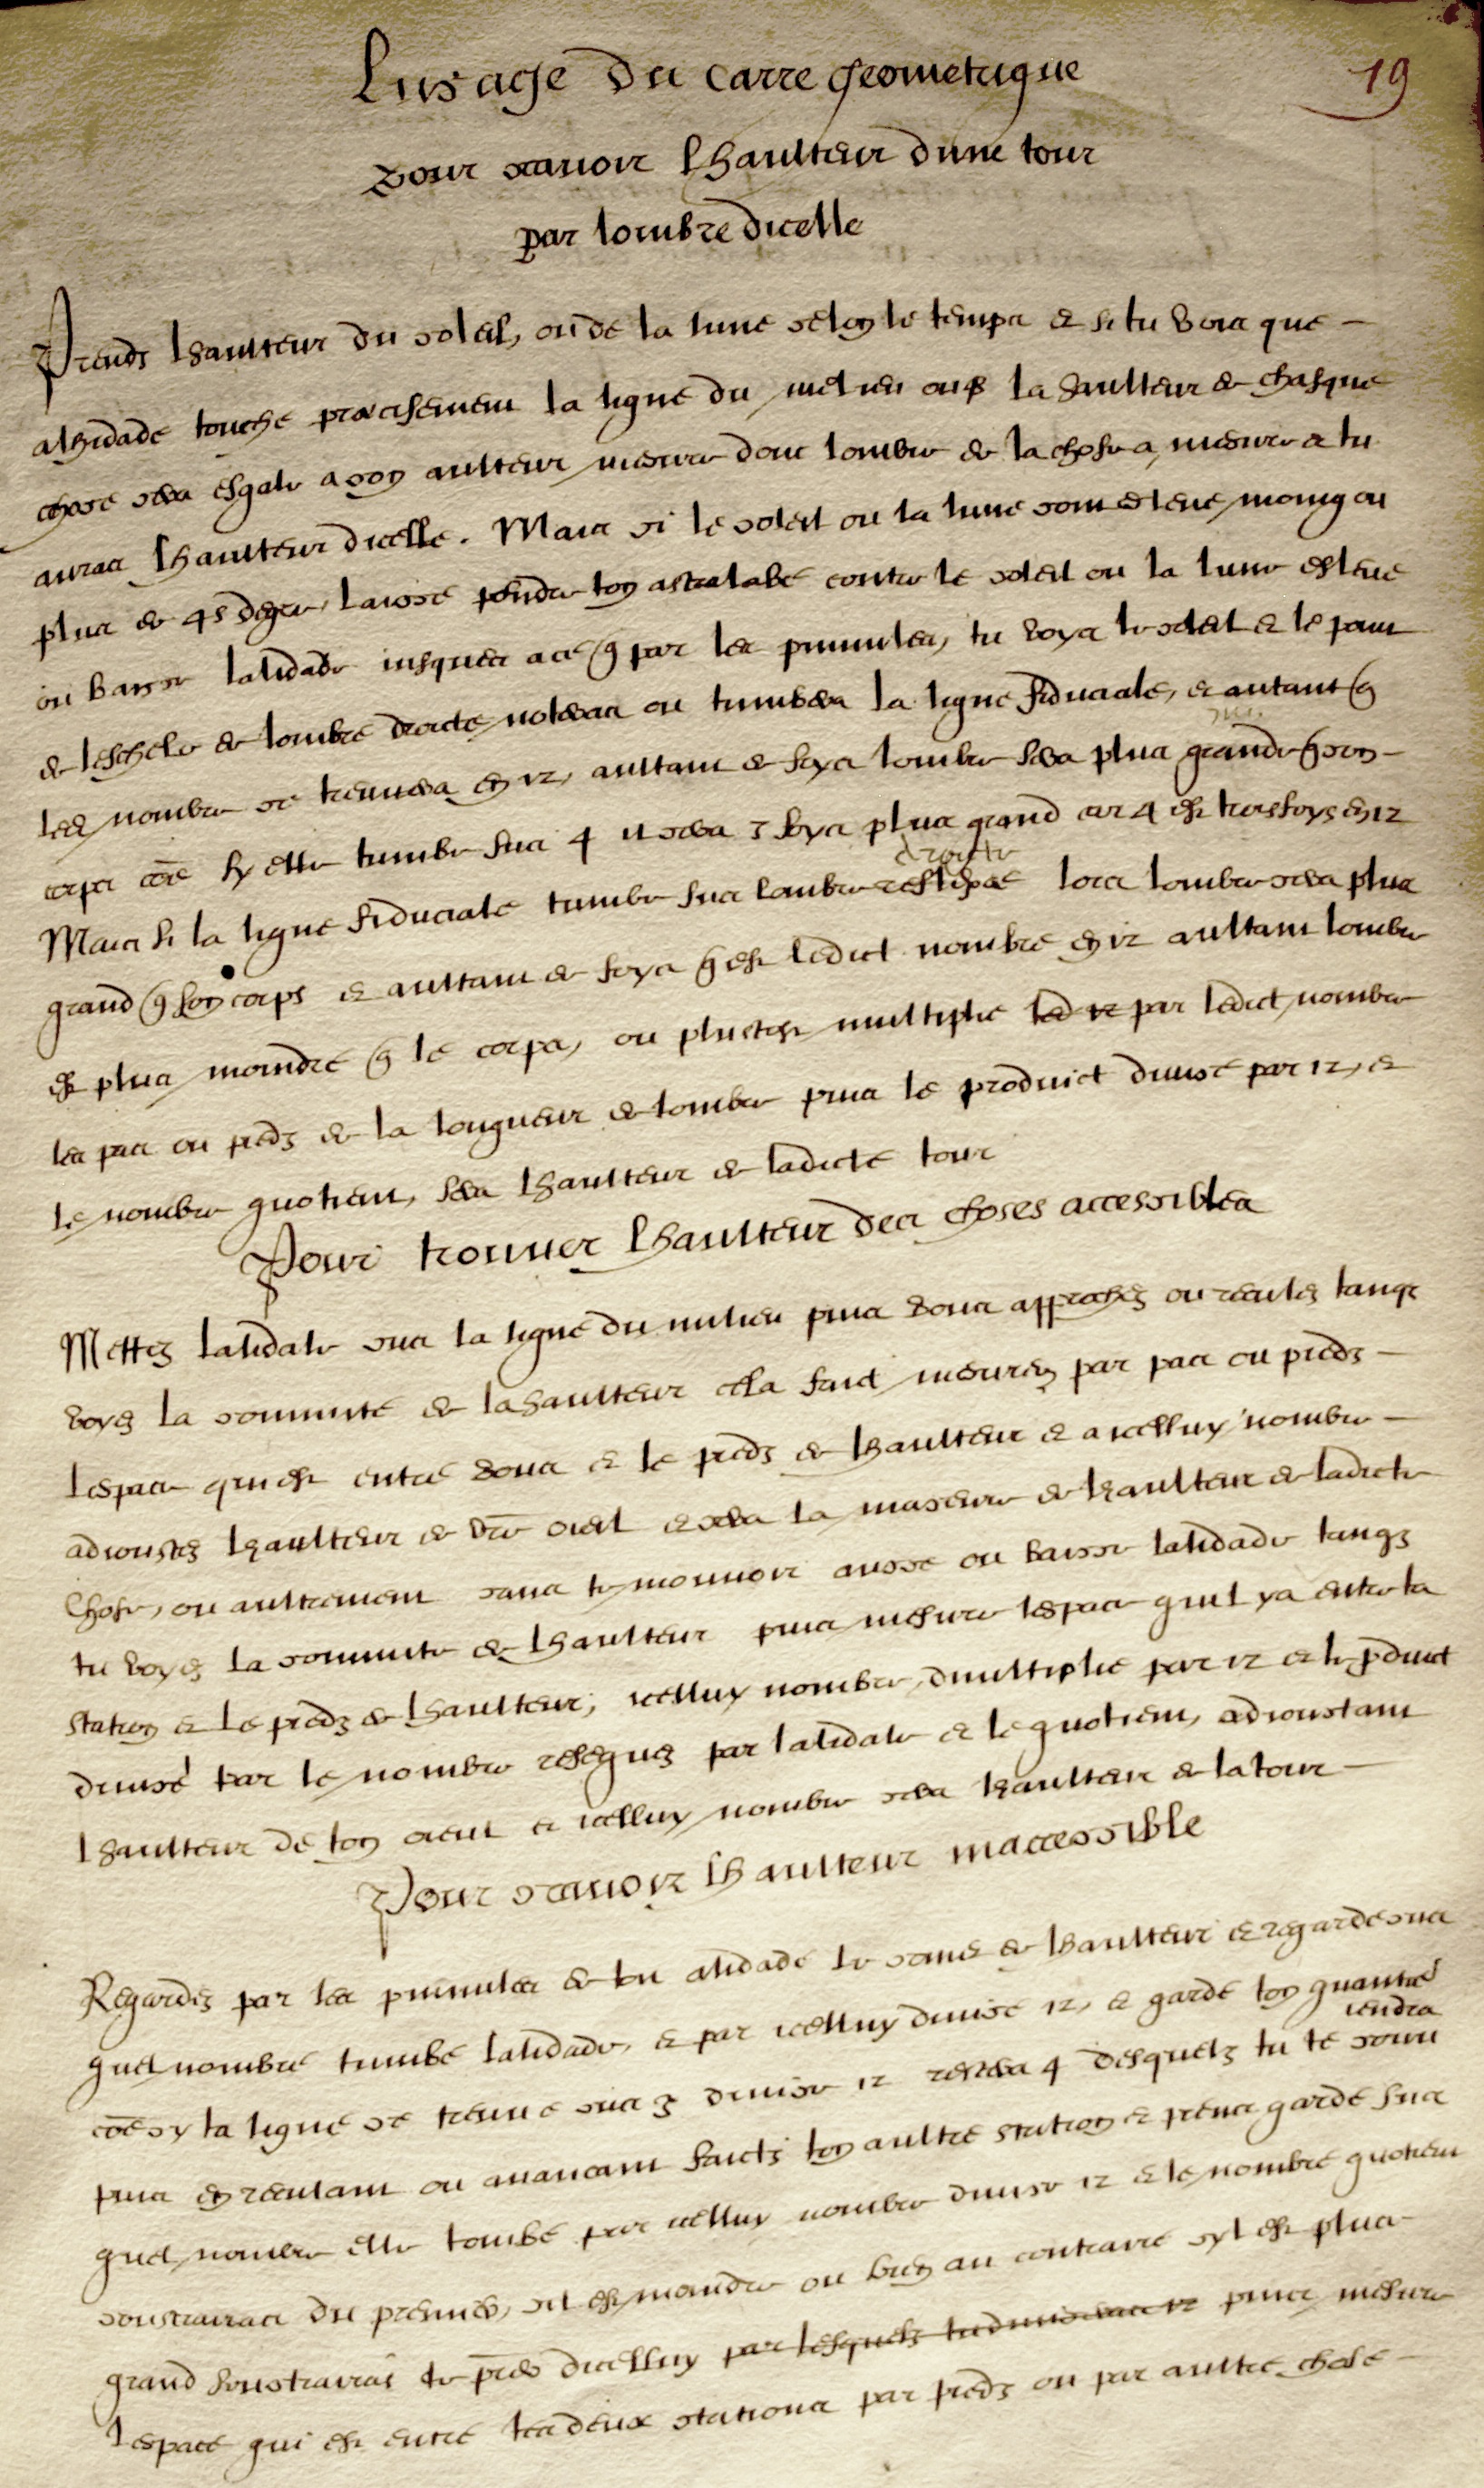 Lusage du carre geometrique
19
pour scauoir lhaulteur dune tour
par lombre dicelle
Prends lhaulteur du soleil, ou de la lune selon le temps et si tu vois que
alhidade touche precisement la ligne du milieu la haulteur de chasque
chose sera esgale a son aulteur mesure donc lombre de la chose a mesurer et tu
auras lhaulteur dicelle. Mais si le soleil ou la lune sont esleue moings ou
plus de 45 degre, laisse pendre ton astralabe contre le soleil ou la lune esleue
ou baisse lalidade iusques a ce q par les pinnules, tu voys le soleil et le point
de leschele de lombre droicte noteras ou tumbera la ligne fiduciale, et autant q
led nombre se treuuera en 12, aultant de foys lombre sera plus grande q son
corps cõe sy elle tumbe sus 4 il sera 3 foys plus grand car 4 est trois foys en 12
droicte
Mais si la ligne fiduciale tumbe sus lombre lors lombre sera plus
grand q son corps et aultant de foys q est ledict nombre en 12 aultant lombre
est plus moindre q le corps, ou plustost multiplie led 12 par ledict nombre
les pas ou pieds de la longueur de lombre puis le produict diuise par 12, et
le nombre quotient, sera lhaulteur de ladicte tour
Pour trouuer lhaulteur des choses accessibles
Mettez lalidade sus la ligne du milieu puis vous approchez ou reculez tanqz
voyez la sommite de lahaulteur cela faict mesurez par pas ou pieds
lespace qui est entre vous et le pieds de lhaulteur et a icelluy nombre
adioustez lhaulteur de vrẽ oieil et sera la maseure de haulteur de ladicte
chose, ou aultrement sans te mouuoir ausse ou baisse lalidade tanqz
tu voyez la sommite de lhaulteur puis mesure lespace quil ya entre la
station et le pieds de lhaulteur, icelluy nombre, multiplie par 12 et le pduict
diuise par le nombre reseques par lalidade et le quotient, adioustant
lhaulteur de ton oieul et icelluy nombre sera haulteur de la tour
Pour scauoir lhaulteur inaccessible
Regardez par les pinnules de ton alidade le de lhaulteur et regarde sus
quel nombre tumbe lalidade, et par icelluy diuise 12, et garde ton
iendra
cõe sy la ligne se treuue sus 3 diuise 12 restera 4 desquels tu te souu
puis en reculant ou auancant faicts ton aultre station et prens garde sus
quel nombre elle tombe par icelluy nombre diuise 12 et le nombre quotient
soustrairas du premier, sil est moindre ou bien au contraire syl est plus
grand soustrairas le pier dicelluy par lesquels tu diuiseras 12 puis mesure
lespace qui est entre les deux stations par pieds ou par aultre chose